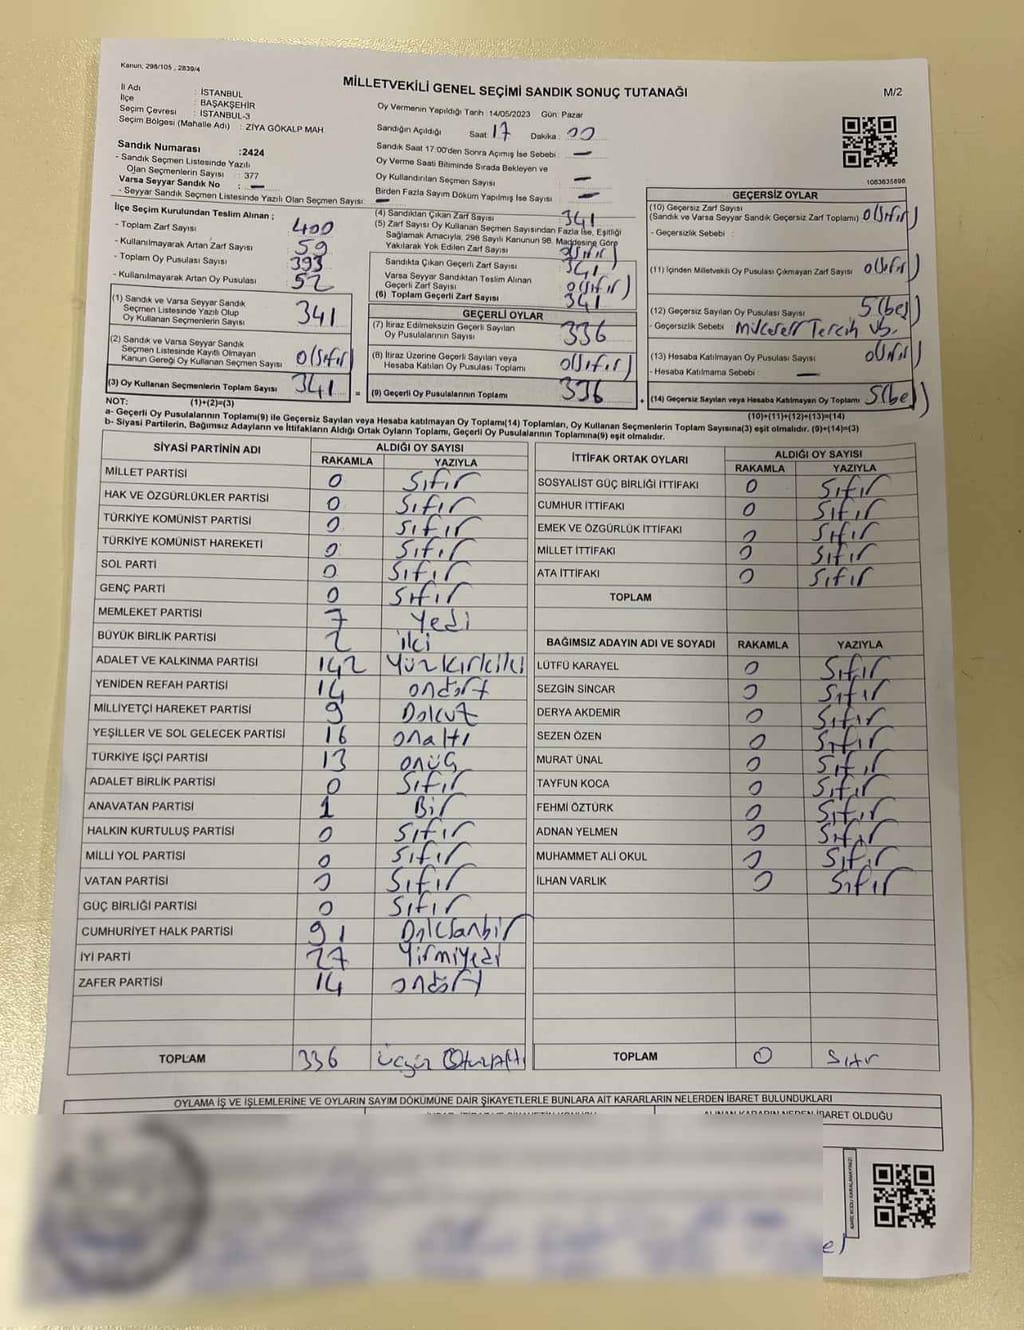 Kanun, 298/105 , 2839/4
MİLLETVEKİLİ GENEL SEÇİMİ SANDIK SONUÇ TUTANAĞI
M/2
İl Adı : İSTANBUL
İlçe : BAŞAKŞEHİR
Seçim Çevresi : İSTANBUL-3
Seçim Bölgesi (Mahalle Adı) : ZİYA GÖKALP MAH
Oy Vermenin Yapıldığı Tarih :14/05/2023 Gün: Pazar
Sandığın Açıldığı Saat: 17 Dakika : 00
Sandık Saat 17:00'den Sonra Açılmış İse Sebebi : —
Oy Verme Saati Bitiminde Sırada Bekleyen ve
Oy Kullandırılan Seçmen Sayısı : —
Birden Fazla Sayım Döküm Yapılmış İse Sayısı : —
1083635896
Sandık Numarası :2424
- Sandık Seçmen Listesinde Yazılı
Olan Seçmenlerin Sayısı : 377
Varsa Seyyar Sandık No : —
- Seyyar Sandık Seçmen Listesinde Yazılı Olan Seçmen Sayısı: —
İlçe Seçim Kurulundan Teslim Alınan ;
- Toplam Zarf Sayısı : 400
- Kullanılmayarak Artan Zarf Sayısı : 59
- Toplam Oy Pusulası Sayısı : 393
- Kullanılmayarak Artan Oy Pusulası : 52
(1) Sandık ve Varsa Seyyar Sandık
Seçmen Listesinde Yazılı Olup
Oy Kullanan Seçmenlerin Sayısı : 341
(2) Sandık ve Varsa Seyyar Sandık
Seçmen Listesinde Kayıtlı Olmayan
Kanun Gereği Oy Kullanan Seçmen Sayısı : 0(Sıfır)
(3) Oy Kullanan Seçmenlerin Toplam Sayısı : 341
(4) Sandıktan Çıkan Zarf Sayısı : 341
(5) Zarf Sayısı Oy Kullanan Seçmen Sayısından Fazla İse, Eşitliği
Sağlamak Amacıyla, 298 Sayılı Kanunun 98. Maddesine Göre
Yakılarak Yok Edilen Zarf Sayısı : 0(Sıfır)
Sandıkta Çıkan Geçerli Zarf Sayısı : 341
Varsa Seyyar Sandıktan Teslim Alınan
Geçerli Zarf Sayısı : 0(Sıfır)
(6) Toplam Geçerli Zarf Sayısı : 341
GEÇERLİ OYLAR
(7) İtiraz Edilmeksizin Geçerli Sayılan
Oy Pusulalarının Sayısı : 336
(8) İtiraz Üzerine Geçerli Sayılan veya
Hesaba Katılan Oy Pusulası Toplamı : 0(Sıfır)
= (9) Geçerli Oy Pusulalarının Toplamı : 336
GEÇERSİZ OYLAR
(10) Geçersiz Zarf Sayısı
(Sandık ve Varsa Seyyar Sandık Geçersiz Zarf Toplamı) : 0(Sıfır)
- Geçersizlik Sebebi :
(11) İçinden Milletvekili Oy Pusulası Çıkmayan Zarf Sayısı : 0(Sıfır)
(12) Geçersiz Sayılan Oy Pusulası Sayısı : 5(beş)
- Geçersizlik Sebebi : Tercih vb.
(13) Hesaba Katılmayan Oy Pusulası Sayısı : 0(Sıfır)
- Hesaba Katılmama Sebebi : —
+ (14) Geçersiz Sayılan veya Hesaba Katılmayan Oy Toplamı : 5(beş)
NOT: (1)+(2)=(3) (10)+(11)+(12)+(13)=(14)
a- Geçerli Oy Pusulalarının Toplamı(9) ile Geçersiz Sayılan veya Hesaba katılmayan Oy Toplamı(14) Toplamları, Oy Kullanan Seçmenlerin Toplam Sayısına(3) eşit olmalıdır. (9)+(14)=(3)
b- Siyasi Partilerin, Bağımsız Adayların ve İttifakların Aldığı Ortak Oyların Toplamı, Geçerli Oy Pusulalarının Toplamına(9) eşit olmalıdır.
SİYASİ PARTİNİN ADI ALDIĞI OY SAYISI
RAKAMLA YAZIYLA
MİLLET PARTİSİ 0 Sıfır
HAK VE ÖZGÜRLÜKLER PARTİSİ 0 Sıfır
TÜRKİYE KOMÜNİST PARTİSİ 0 Sıfır
TÜRKİYE KOMÜNİST HAREKETİ 0 Sıfır
SOL PARTİ 0 Sıfır
GENÇ PARTİ 0 Sıfır
MEMLEKET PARTİSİ 7 Yedi
BÜYÜK BİRLİK PARTİSİ 2 iki
ADALET VE KALKINMA PARTİSİ 142 Yüzkırkiki
YENİDEN REFAH PARTİSİ 14 ondört
MİLLİYETÇİ HAREKET PARTİSİ 9 Dokuz
YEŞİLLER VE SOL GELECEK PARTİSİ 16 onaltı
TÜRKİYE İŞÇİ PARTİSİ 13 onüç
ADALET BİRLİK PARTİSİ 0 Sıfır
ANAVATAN PARTİSİ 1 Bir
HALKIN KURTULUŞ PARTİSİ 0 Sıfır
MİLLİ YOL PARTİSİ 0 Sıfır
VATAN PARTİSİ 0 Sıfır
GÜÇ BİRLİĞİ PARTİSİ 0 Sıfır
CUMHURİYET HALK PARTİSİ 91 Doksanbir
İYİ PARTİ 27 Yirmiyedi
ZAFER PARTİSİ 14 ondört
TOPLAM 336 üçyüz Otuzaltı
İTTİFAK ORTAK OYLARI ALDIĞI OY SAYISI
RAKAMLA YAZIYLA
SOSYALİST GÜÇ BİRLİĞİ İTTİFAKI 0 Sıfır
CUMHUR İTTİFAKI 0 Sıfır
EMEK VE ÖZGÜRLÜK İTTİFAKI 0 Sıfır
MİLLET İTTİFAKI 0 Sıfır
ATA İTTİFAKI 0 Sıfır
TOPLAM
BAĞIMSIZ ADAYIN ADI VE SOYADI RAKAMLA YAZIYLA
LÜTFÜ KARAYEL 0 Sıfır
SEZGİN SİNCAR 0 Sıfır
DERYA AKDEMİR 0 Sıfır
SEZEN ÖZEN 0 Sıfır
MURAT ÜNAL 0 Sıfır
TAYFUN KOCA 0 Sıfır
FEHMİ ÖZTÜRK 0 Sıfır
ADNAN YELMEN 0 Sıfır
MUHAMMET ALİ OKUL 0 Sıfır
İLHAN VARLIK 0 Sıfır
TOPLAM 0 Sıfır
OYLAMA İŞ VE İŞLEMLERİNE VE OYLARIN SAYIM DÖKÜMÜNE DAİR ŞİKAYETLERLE BUNLARA AİT KARARLARIN NELERDEN İBARET BULUNDUKLARI
ALINAN KARARIN NEDEN İBARET OLDUĞU
KARE KODU KARALAMAYINIZ